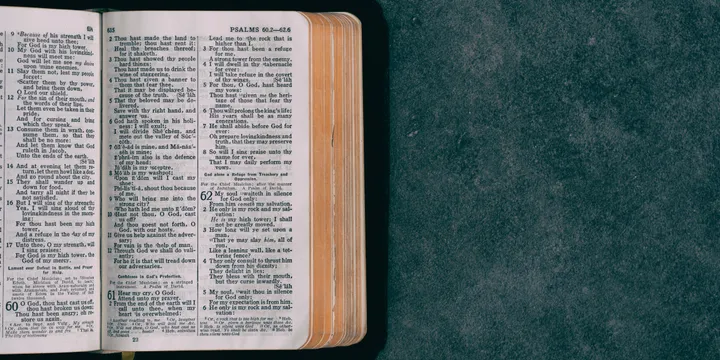 9 Because of his strength I will
give heed unto thee;
For God is my high tower.
10 My God with his lovingkind-
ness will meet me:
God will let me see my desire
upon mine enemies.
11 Slay them not, lest my people
forget:
Scatter them by thy power,
and bring them down,
O Lord our shield.
12 For the sin of their mouth, and
the words of their lips,
Let them even be taken in their
pride,
And for cursing and lying
which they speak.
13 Consume them in wrath, con-
sume them, so that they
shall be no more:
And let them know that God
ruleth in Jacob,
Unto the ends of the earth.
Sē'lăh
14 And at evening let them re-
turn, let them howl like a dog,
And go round about the city.
15 They shall wander up and
down for food,
And tarry all night if they be
not satisfied.
16 But I will sing of thy strength;
Yea, I will sing aloud of thy
lovingkindness in the morn-
ing:
For thou hast been my high
tower,
And a refuge in the day of my
distress.
17 Unto thee, O my strength, will
I sing praises:
For God is my high tower, the
God of my mercy.
Lament over Defeat in Battle, and Prayer
for Help.
60 O God, thou hast cast us off,
thou hast broken us down;
Thou hast been angry; oh re-
store us again.
615
PSALMS 60.2—62.6
2 Thou hast made the land to
tremble; thou hast rent it:
Heal the breaches thereof;
for it shaketh.
3 Thou hast showed thy people
hard things:
Thou hast made us to drink the
wine of staggering.
4 Thou hast given a banner to
them that fear thee,
That it may be displayed be-
cause of the truth. Sē'lăh
5 That thy beloved may be de-
livered,
Save with thy right hand, and
answer us.
6 God hath spoken in his holi-
ness: I will exult;
I will divide Shē'chĕm, and
mete out the valley of Sŭc'-
coth.
7 Gĭl'e-ăd is mine, and Mā-năs'-
sĕh is mine;
Ē'phră-ĭm also is the defence
of my head;
Jū'dăh is my sceptre.
8 Mō'ăb is my washpot;
Upon Ē'dom will I cast my
shoe:
Phĭ-lĭs'tĭ-ă, shout thou because
of me.
9 Who will bring me into the
strong city?
Who hath led me unto Ē'dom?
10 Hast not thou, O God, cast
us off?
And thou goest not forth, O
God, with our hosts.
11 Give us help against the adver-
sary;
For vain is the help of man.
12 Through God we shall do val-
iantly;
For he it is that will tread down
our adversaries.
Confidence in God's Protection.
For the Chief Musician; on a stringed
instrument. A Psalm of David.
61 Hear my cry, O God;
Attend unto my prayer.
2 From the end of the earth will I
call unto thee, when my
heart is overwhelmed:
23
Lead me to the rock that is
higher than I.
3 For thou hast been a refuge
for me,
A strong tower from the enemy.
4 I will dwell in thy tabernacle
for ever:
I will take refuge in the covert
of thy wings. Sē'lăh
5 For thou, O God, hast heard
my vows:
Thou hast given me the heri-
tage of those that fear thy
name.
6 Thou wilt prolong the king's life;
His years shall be as many
generations.
7 He shall abide before God for
ever:
Oh prepare lovingkindness and
truth, that they may preserve
him.
8 So will I sing praise unto thy
name for ever,
That I may daily perform my
vows.
God alone a Refuge from Treachery and
Oppression.
For the Chief Musician; after the manner
of Jeduthun. A Psalm of David.
62 My soul waiteth in silence
for God only:
From him cometh my salvation.
2 He only is my rock and my sal-
vation:
He is my high tower; I shall
not be greatly moved.
3 How long will ye set upon a
man,
That ye may slay him, all of
you,
Like a leaning wall, like a tot-
tering fence?
4 They only consult to thrust him
down from his dignity;
They delight in lies;
They bless with their mouth,
but they curse inwardly.
Sē'lăh
5 My soul, wait thou in silence
for God only;
For my expectation is from him.
6 He only is my rock and my sal-
vation: